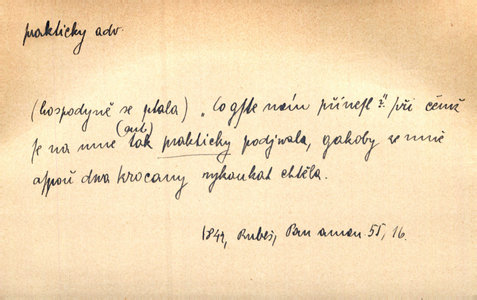 prakticky adv.
(hospodyně se ptala) „Co gste nám přinesl?“ při čemž
se na mne (aut) tak prakticky podjwala, gakoby ze mně
aspoň dwa krocany vykoukat chtěla.
184, Rubeš, Pan aman. 51, 16.